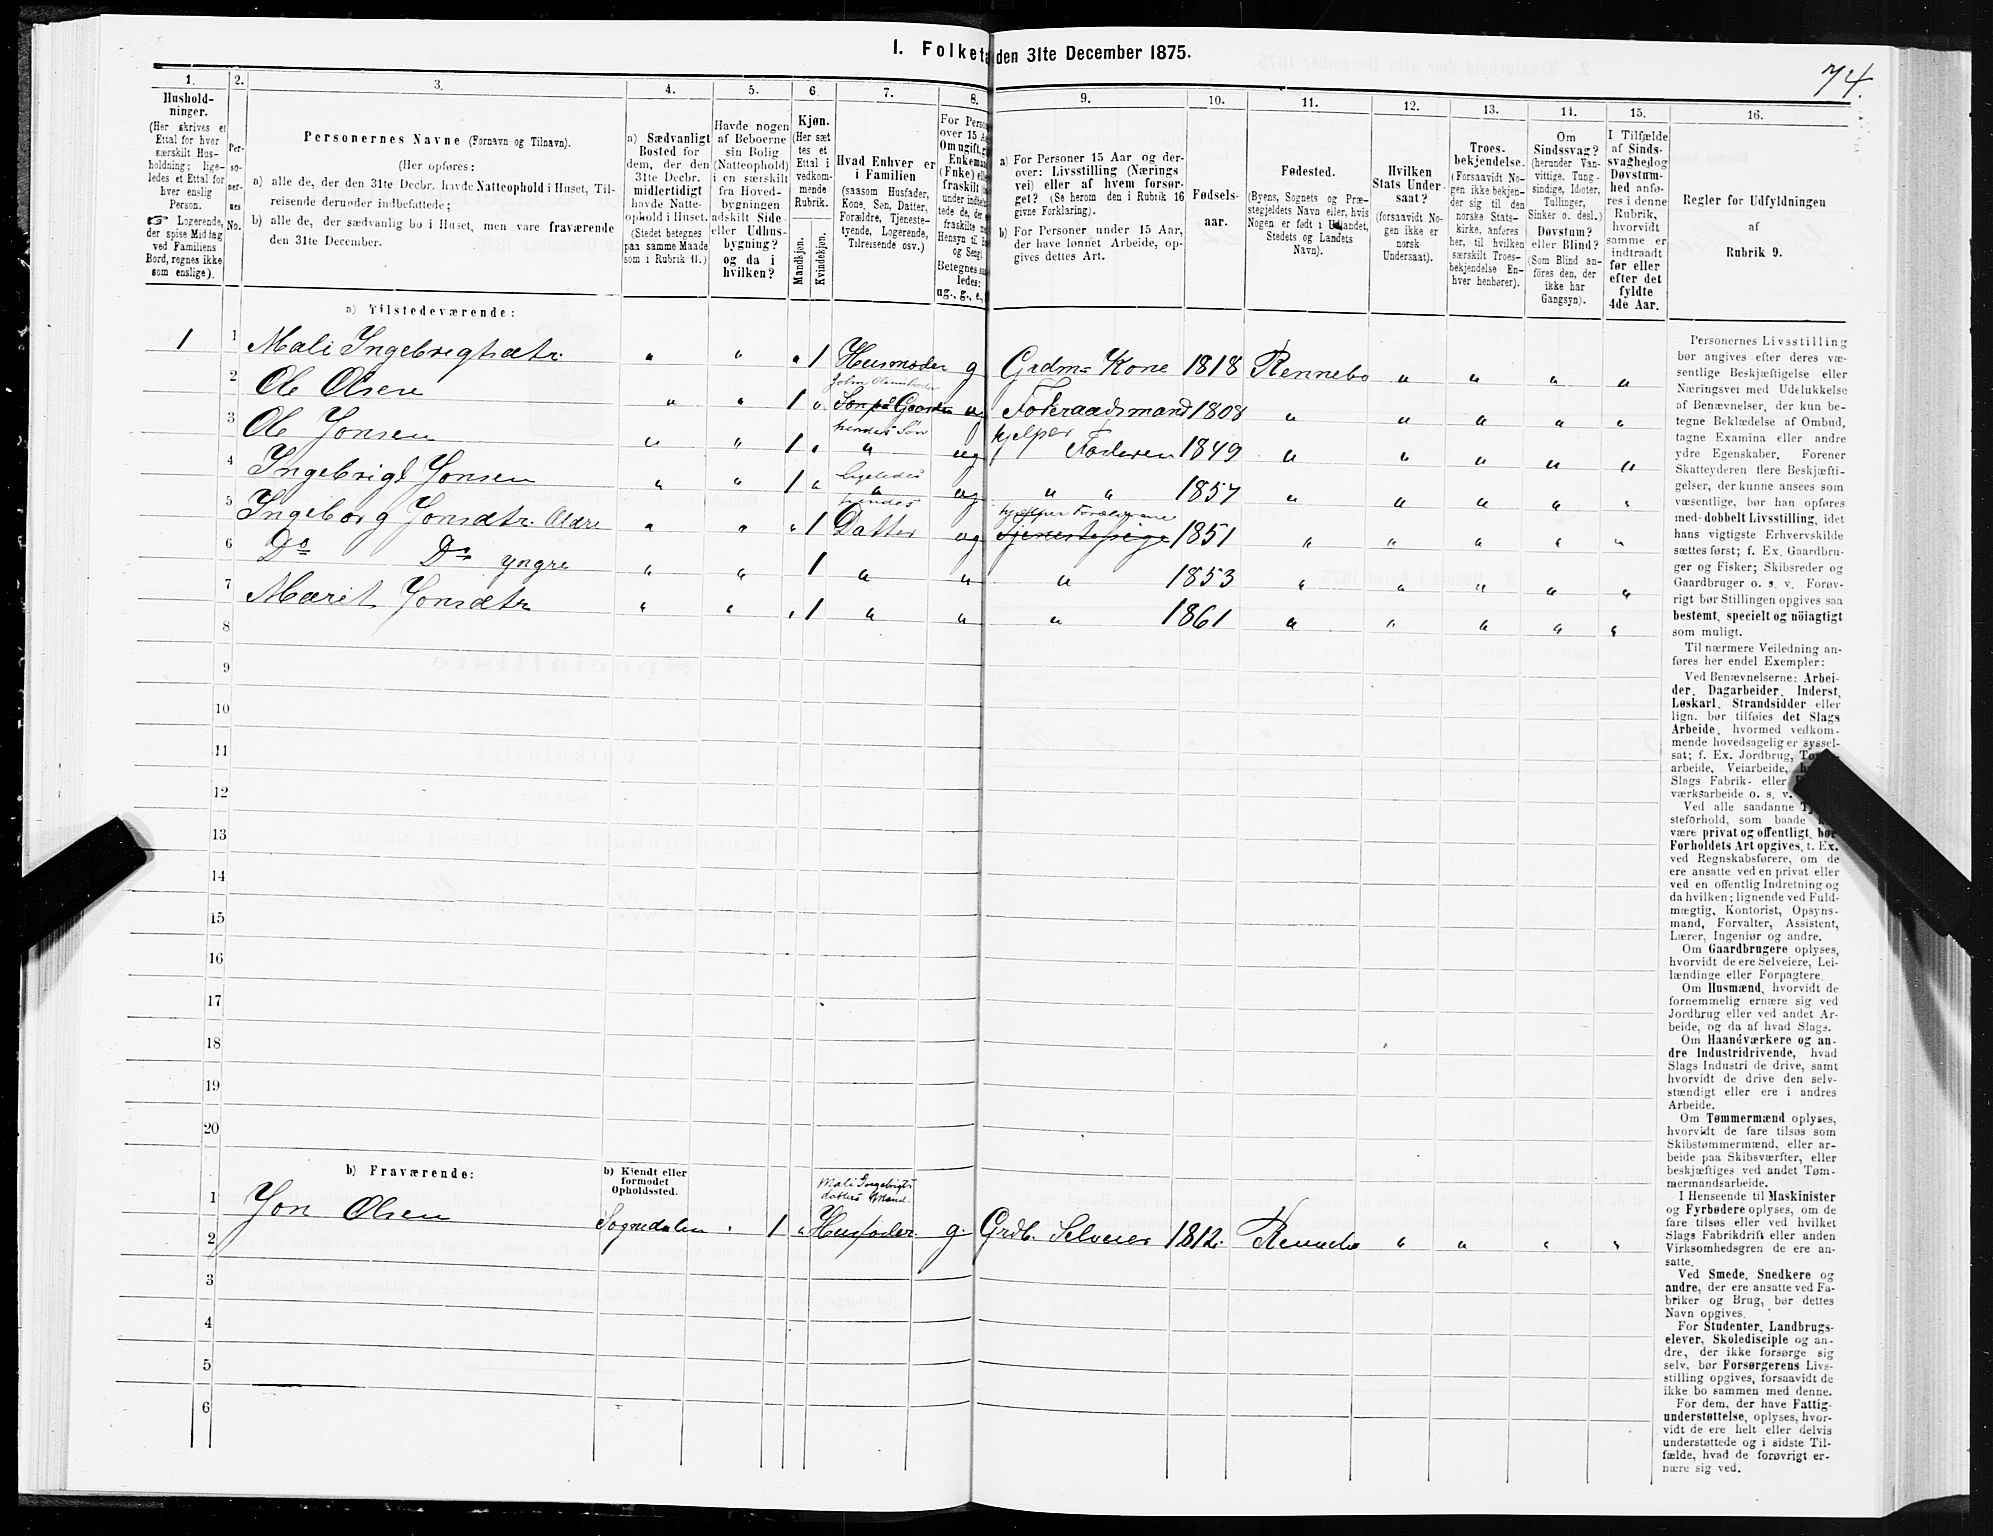 I. Folketa den 31te December 1875.
74.
1.
Hushold-
ninger.
(Her skrives et
Ettal for hver
særskilt Hus-
holdning; lige-
ledes et Ettal for
hver enslig
Person.
☞ Logerende,
der spise Middag
ved Familiens
Bord, regnes ikke
som enslige).
2.
Per-
so-
ner-
nes
No.
3.
Personernes Navne (Fornavn og Tilnavn).
(Her opføres:
a) alle de, der den 31te Decbr. havde Natteophold i Huset, Til-
reisende derunder indbefattede;
b) alle de, der sædvanlig bo i Huset, men vare fraværende
den 31te December.
4.
a) Sædvanligt
Bosted for
dem, der den
31te Decbr.
midlertidigt
havde Natte-
ophold i Huset.
(Stedet betegnes
paa samme Maade
som i Rubrik 11.)
5.
Havde nogen
af Beboerne
sin Bolig
(Natteophold)
i en særskilt
fra Hoved-
bygningen
adskilt Side-
eller Udhus-
bygning?
og da i
hvilken?
6.
Kjøn.
(Her sæt-
tes et
Ettal i
vedkom-
mende
Rubrik.
Mandkjøn.
Kvindekjøn.
7.
Hvad Enhver er
i Familien
(saasom Husfader,
Kone, Søn, Datter,
Forældre, Tjeneste-
tyende, Logerende,
Tilreisende osv.)
8.
For Pers
over 15 A
Om ugift, g
Enkeman
(Enke) ell
fraskilt
under indb
tede de, de
fraskilte
Hensyn til
og Seng).
Betegnes sa
ledes:
ug., g., e.,
9.
a) For Personer 15 Aar og der-
over: Livsstilling (Nærings
vei) eller af hvem forsør-
get? (Se herom den i Rubrik 16
givne Forklaring).
b) For Personer under 15 Aar,
der have lønnet Arbeide, op-
gives dettes Art.
10.
Fødsels-
aar.
11.
Fødested.
(Byens, Sognets og Præ-
stegjeldets Navn eller, hvis
Nogen er født i Udlandet,
Stedets og Landets
Navn).
12.
Hvilken
Stats Under-
saat?
(forsaavidt No-
gen ikke er
norsk
Undersaat).
13.
Troes-
bekjendelse.
(Forsaavidt No-
gen ikke bekjen-
der sig til den
norske Stats-
kirke, anfø-
res her, til hvilken
særskilt Troes-
bekjendelse En-
hver henhører).
14.
Om
Sindssvag?
(herunder Van-
vittige, Tung-
sindige, Idioter,
Tullinger,
Sinker o. desl.)
Døvstum?
eller Blind?
(Som Blind an-
føres den, der
ikke har
Gangsyn).
15.
I Tilfælde
af Sinds-
svaghed og
Døvstum-
hed anfø-
res i denne
Rubrik,
hvorvidt
samme er
indtraadt
før eller
efter det
fyldte
4de Aar.
16.
Regler for Udfyldningen
af
Rubrik 9.
a) Tilstedeværende:
1 1 Mali Ingebrigtsdtr. " " " 1 Husmoder g Grdm= Kone 1818 Rennebo " " " "
2 Ole Olsen " " 1 " Søn på Gaarden ug Føderaadsmand 1808 " " " " "
3 Ole Jonsen " " 1 " hendes Søn " ug hjelper Faderen 1849 " " " " "
4 Ingebrigt Jonsen " " 1 " ligeledes " ug " " 1857 " " " " "
5 Ingeborg Jonsdtr. Ældre " " " 1 hendes Datter ug hjelper Forældrene Tjenestepige 1851 " " " " "
6 Do Do yngre " " 1 " " " 1853 " " " " "
7 Marit Jonsdtr " " " 1 " " " 1861 " " " " "
8
9
10
11
12
13
14
15
16
17
18
19
20
b) Fraværende:
b) Kjendt eller
formodet
Opholdssted.
1 Jon Olsen Sognedalen " 1 " Mali Ingebrigts datters Mand. Husfader g. Grdb. Selveier 1812. Rennebo " " " "
2
3
4
5
6
Personernes Livsstilling
bør angives efter deres væ-
sentlige Beskjæftigelse eller
Næringsvei med Udelukkelse
af Benævnelser, der kun be-
tegne Beklædelse af Ombud,
tagne Examina eller andre
ydre Egenskaber. Forener
Skatteyderen flere Beskjæfti-
gelser, der kunne ansees som
væsentlige, bør han opføres
med dobbelt Livsstilling, idet
hans vigtigste Erhvervskilde
sættes først; f. Ex. Gaardbru-
ger og Fisker; Skibsreder og
Gaardbruger o. s. v. Forøv-
rigt bør Stillingen opgives saa
bestemt, specielt og nöiagtigt
som muligt.
Til nærmere Veiledning an-
føres her endel Exempler:
Ved Benævnelserne: Arbei-
der, Dagarbeider, Inderst,
Løskarl, Strandsidder eller
lign. bør tilføies det Slags
Arbeide, hvormed vedkom-
mende hovedsagelig er syssel-
sat; f. Ex. Jordbrug,
arbeide, Veiarbeide,
Slags Fabrik- eller
værksarbeide o. s. v.
Ved alle saadanne
steforhold, som baade
være privat og offentligt, bør
Forholdets Art opgives, t. Ex.
ved Regnskabsførere, om de
ere ansatte ved en privat eller
ved en offentlig Indretning og
da hvilken; lignende ved Fuld-
mægtig, Kontorist, Opsyns-
mand, Forvalter, Assistent,
Lærer, Ingeniør og andre.
Om Gaardbrugere oplyses,
hvorvidt de ere Selveiere, Lei-
lændinge eller Forpagtere.
Om Husmænd, hvorvidt de
fornemmelig ernære sig ved
Jordbrug eller ved andet Ar-
beide, og da af hvad Slags.
Om Haandværkere og an-
dre Industridrivende, hvad
Slags Industri de drive, samt
hvorvidt de drive den selv-
stændigt eller ere i andres
Arbeide.
Om Tømmermænd oplyses,
hvorvidt de fare tilsøs som
Skibstømmermænd, eller ar-
beide paa Skibsværfter, eller
beskjæftiges ved andet Tøm-
mermandsarbeide.
I Henseende til Maskinister
og Fyrbødere oplyses, om de
fare tilsøs eller ved hvilket
Slags Fabrikdrift eller anden
Virksomhedsgren de ere an-
satte.
Ved Smede, Snedkere og
andre, der ere ansatte ved Fa-
briker og Brug, bør dettes
Navn opgives.
For Studenter, Landbrugs-
elever, Skoledisciple og an-
dre, der ikke forsørge sig
selv, bør Forsørgerens Livs-
stilling opgives, forsaavidt de
ikke bo sammen med denne.
For dem, der have Fattig-
understøttelse, oplyses, hvor-
vidt de ere helt eller delvis
understøttede og i sidste Til-
fælde, hvad de forøvrigt er-
nære sig ved.